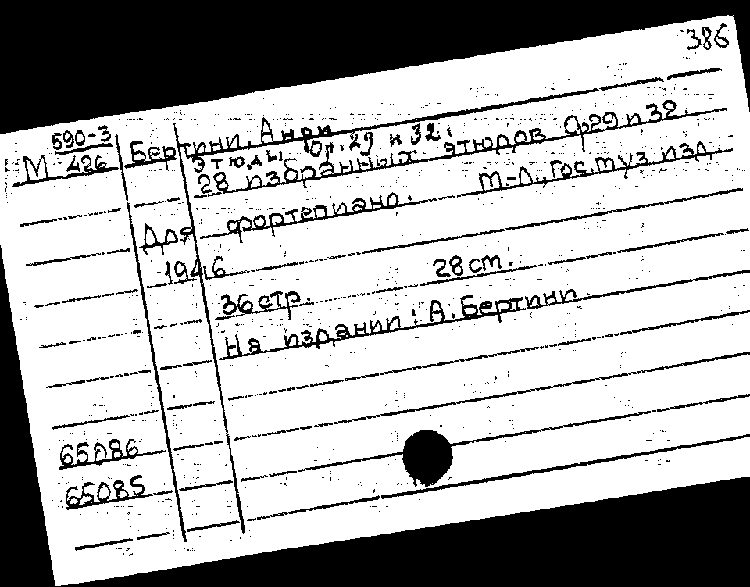 386
590-3
М 426
Бертини, Анри
Этюды, Op. 29 и 32.
28 избранных этюдов Op.29 и 32.
Для фортепиано. М.-Л., Гос. муз. изд.
1946
36 стр. 28 cm.
На издании: А. Бертини
65086
65085